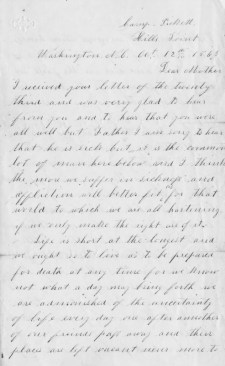 Camp
Hills Point
Washington N.C. Oct 12th 1863
Dear Mother
I received your letter of the twenty
third and was very glad to hear
from you and to hear that you were
all well but Father I am sorry to hear
that he is sick but it is the common
lot of man here below and I think
the more we suffer in sickness and
affliction will better fit for that
world to which we are all hastening
if we only make the right use of it.
Life is short at the longest and
we ought so to live as to be prepared
for death at any time for we know
not what a day may bring forth we
are admonished of the uncertainty
of life every day one after another
of our friends pass away and there
place are left vacant never more to